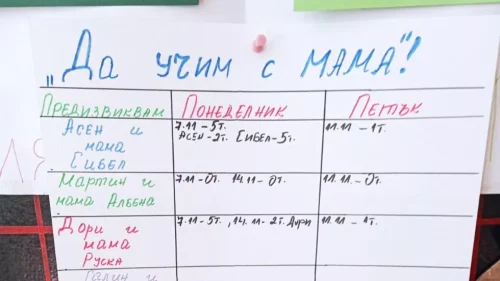 „Да учим с мама"!
Предизвиквам Понеделник Петък
Асен и мама Сибел
7.11 – 5т.
Асен-2т. Сибел-5т.
11.11 – 1т.
Мартин и мама Албена
7.11 – 0т. 14.11 – 0т.
11.11. – 0т.
Дори и мама Руска
7.11 – 5т., 14.11 – 2т. Дори
11.11 – 1т.
Галин и